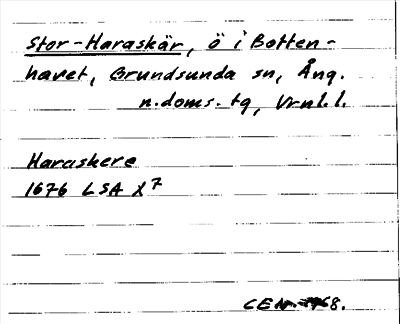 Stor-Haraskär, ö i Botten-
havet, Grundsunda sn, Ång.
n.doms. tg, Vrnl.l.
Haraskere
1676 LSA 7
CEN 68.